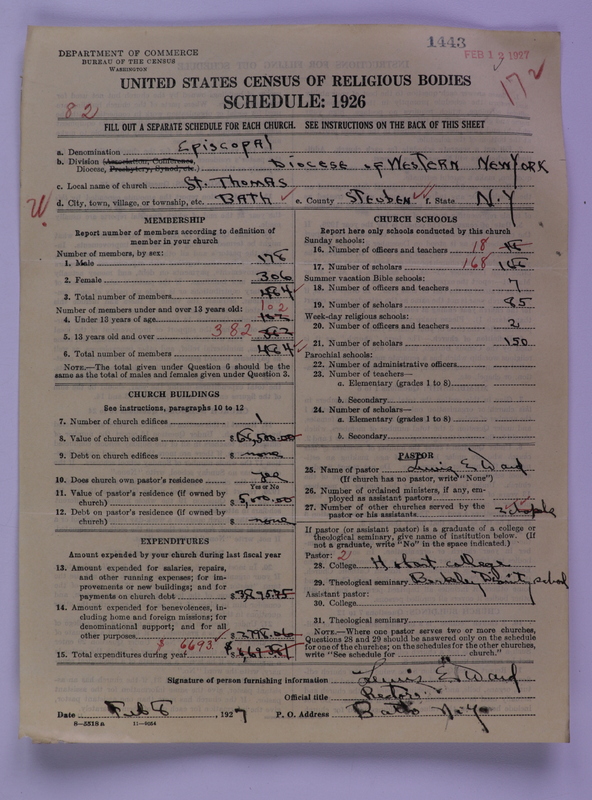 1443
FEB 12 1927
17
DEPARTMENT OF COMMERCE
BUREAU OF THE CENSUS
WASHINGTON
UNITED STATES CENSUS OF RELIGIOUS BODIES
SCHEDULE: 1926
82
FILL OUT A SEPARATE SCHEDULE FOR EACH CHURCH. SEE INSTRUCTIONS ON THE BACK OF THIS SHEET
a. Denomination Episcopal
b. Division (Association, Conference,
Diocese, Presbytery, Synod, etc.) Diocese of Western New York
c. Local name of church St. Thomas
d. City, town, village, or township, etc. Bath e. County Steuben f. State N.Y
MEMBERSHIP
Report number of members according to definition of
member in your church
Number of members, by sex:
1. Male 178
2. Female 306
3. Total number of members 484
Number of members under and over 13 years old: 102
4. Under 13 years of age 102
5. 13 years old and over 382 382
6. Total number of members 484
NOTE.—The total given under Question 6 should be the
same as the total of males and females given under Question 3.
CHURCH BUILDINGS
See instructions, paragraphs 10 to 12
7. Number of church edifices 1
8. Value of church edifices $
9. Debt on church edifices $ none
10. Does church own pastor's residence? yes
Yes or No
11. Value of pastor's residence (if owned by
church) $ 5,000.00
12. Debt on pastor's residence (if owned by
church) $ none
EXPENDITURES
Amount expended by your church during last fiscal year
13. Amount expended for salaries, repairs,
and other running expenses; for im-
provements or new buildings; and for
payments on church debt $ 3895.75
14. Amount expended for benevolences, in-
cluding home and foreign missions; for
denominational support; and for all
other purposes $ 2798.06
15. Total expenditures during year $ 6693. $
CHURCH SCHOOLS
Report here only schools conducted by this church
Sunday schools:
16. Number of officers and teachers 18
17. Number of scholars 168
Summer vacation Bible schools:
18. Number of officers and teachers 7
19. Number of scholars 85
Week-day religious schools:
20. Number of officers and teachers 2
21. Number of scholars 150
Parochial schools:
22. Number of administrative officers
23. Number of teachers—
a. Elementary (grades 1 to 8)
b. Secondary
24. Number of scholars—
a. Elementary (grades 1 to 8)
b. Secondary
PASTOR
25. Name of pastor Lewis E. Ward
(If church has no pastor, write "None")
26. Number of ordained ministers, if any, em-
ployed as assistant pastors
27. Number of other churches served by the
pastor or his assistants
If pastor (or assistant pastor) is a graduate of a college or
theological seminary, give name of institution below. (If
not a graduate, write "No" in the space indicated.)
Pastor: 2
28. College Hobart college
29. Theological seminary Berkeley Divinity School
Assistant pastor:
30. College
31. Theological seminary
NOTE.—Where one pastor serves two or more churches,
Questions 28 and 29 should be answered only on the schedule
for one of the churches; on the schedules for the other churches,
write "See schedule for church."
Signature of person furnishing information Lewis E. Ward
Official title Rector
Date Feb 8, 1927 P. O. Address Bath N.Y.
8—5318a 11—9064